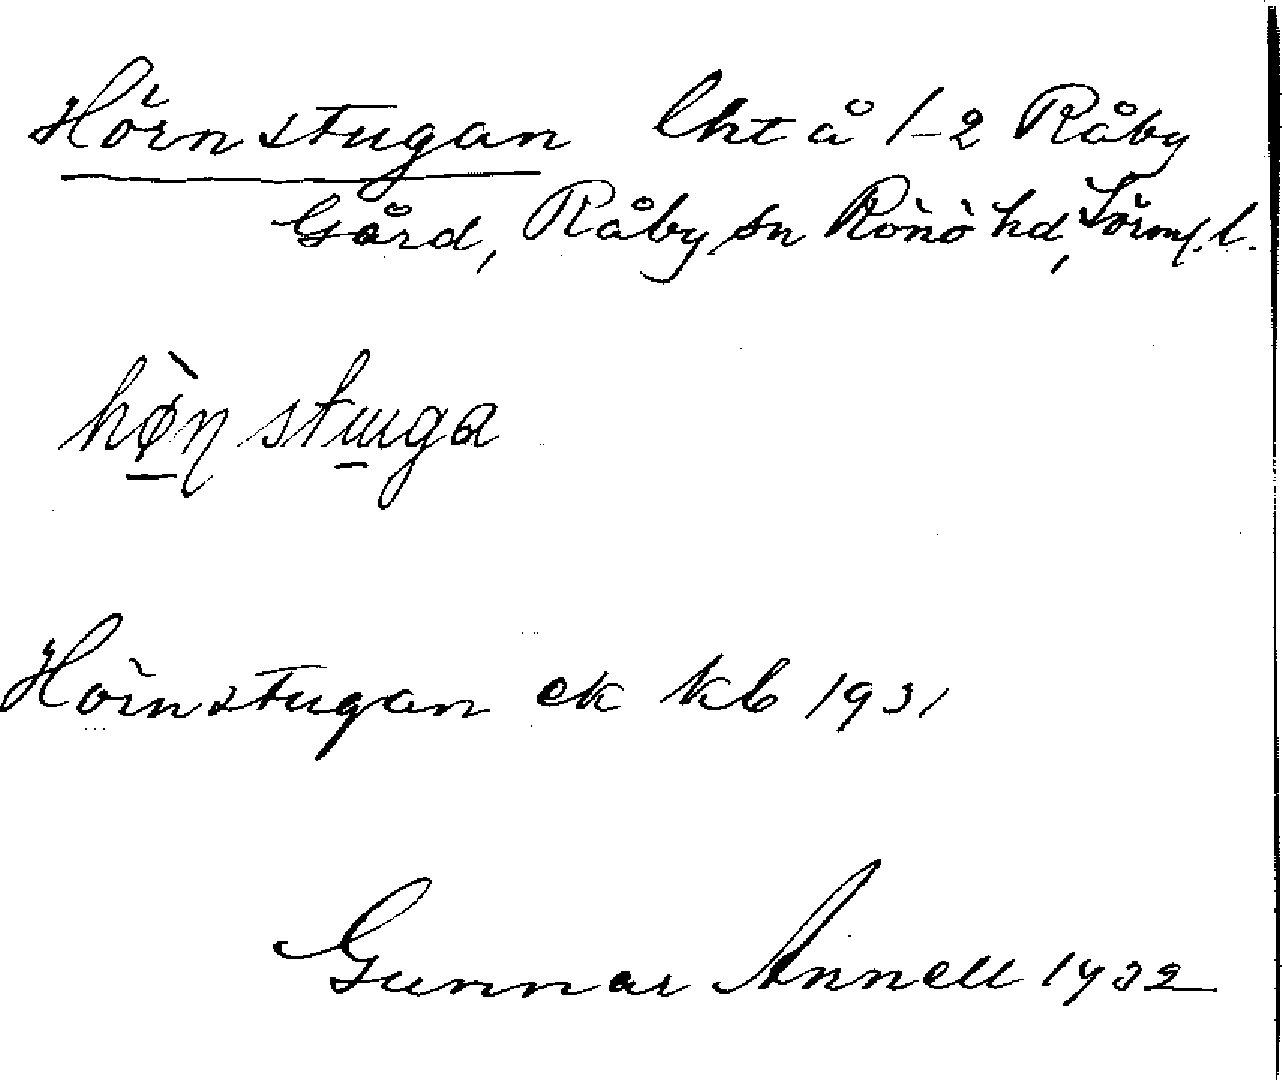 Hörnstugan lht å 1-2 Råby
Gård, Råby sn Rönö hd, Sörml. l.
hø̀ɳ stuga
Hörnstugan ek kb 1931
Gunnar Annell 1932